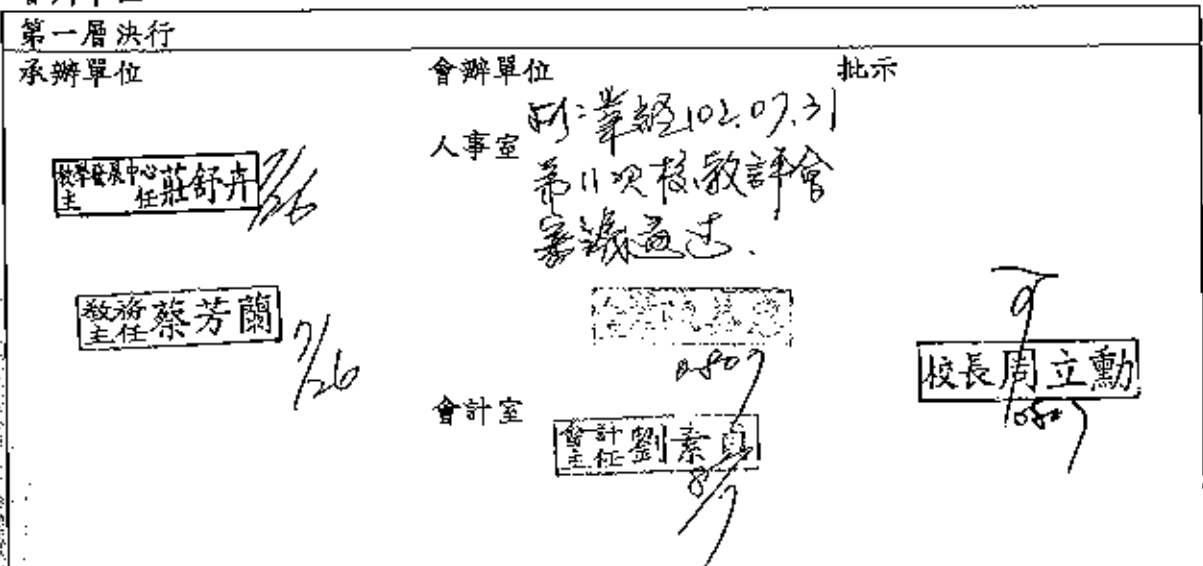 第一層決行
承辦單位
教學發展中心
主任莊舒卉
7/26
教務
主任蔡芳蘭
7/26
會辦單位
人事室
業經102.07.31
第11次校教評會
審議通過.
0807
會計室
會計
主任劉素真
8/7
批示
校長周立勳
0807